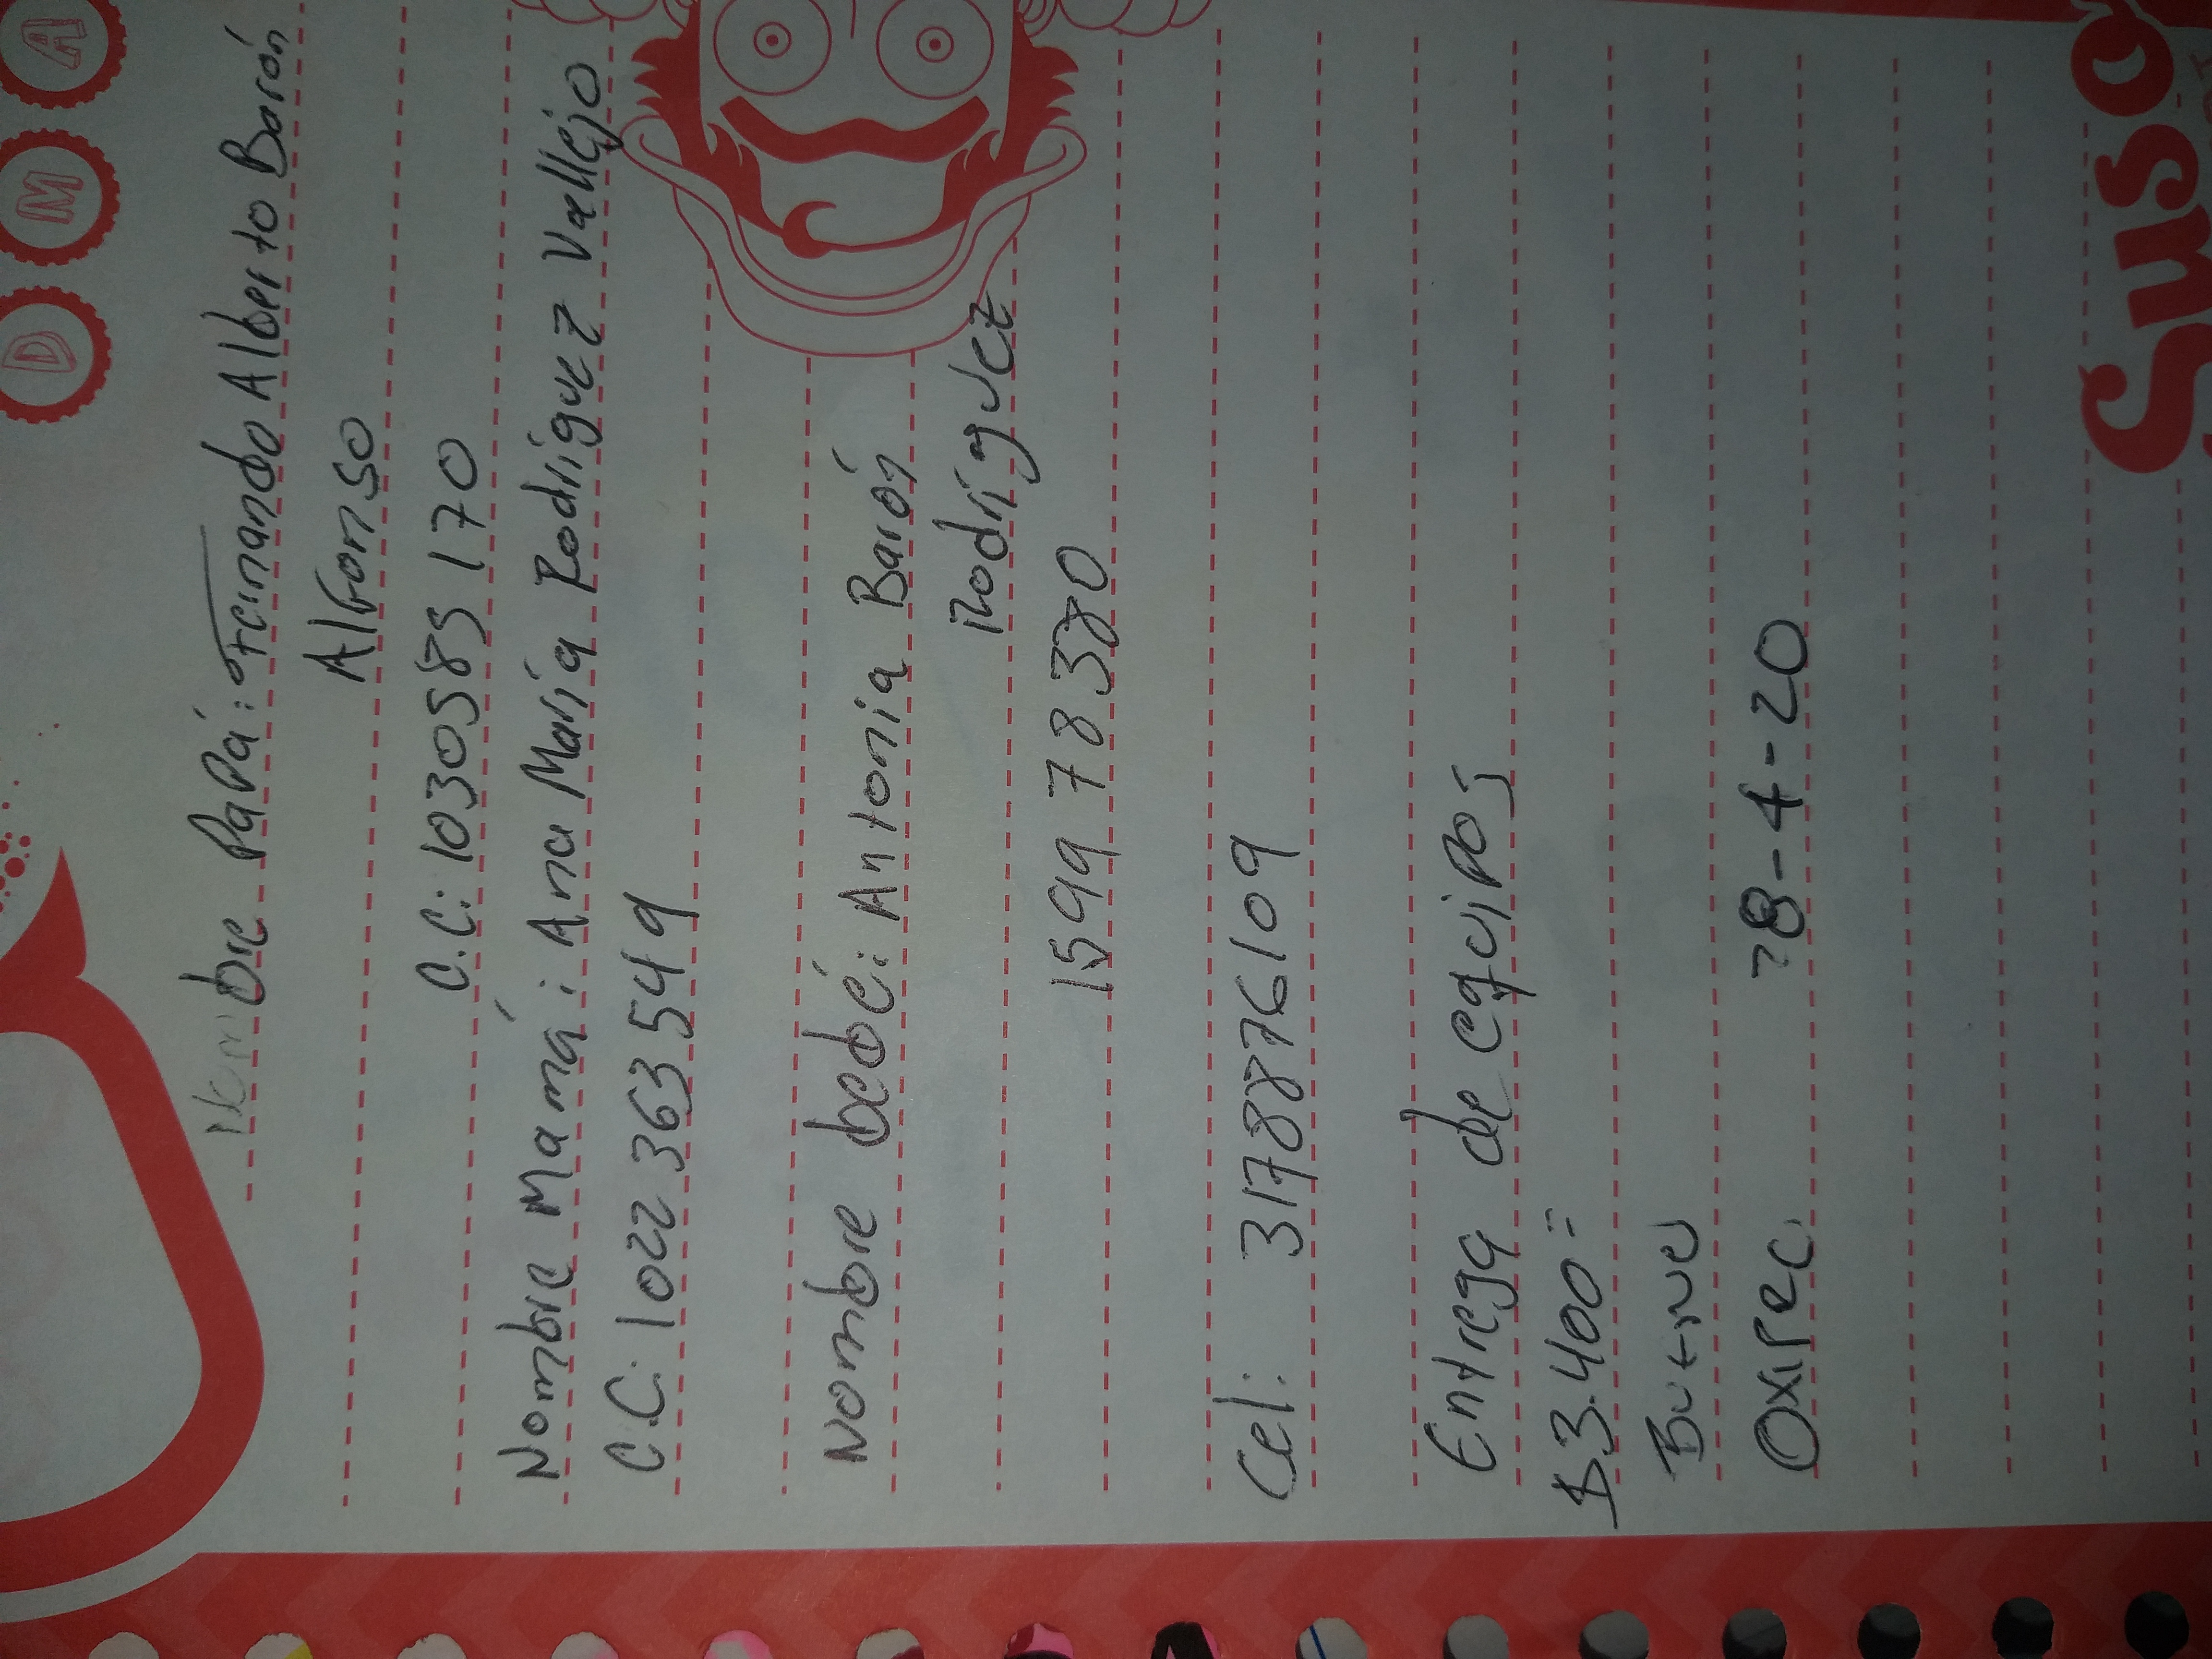 D M A
Nombre Papá: Fernando Alberto Barón
Alfonso
C.C: 1030585170
Nombre Mamá: Ana María Rodríguez Vallejo
C.C: 1022 363 549
Nombre bebé: Antonia Barón
Rodríguez
1599 78380
Cel: 3178876109
Entrega de equipos
$3.400=
Oxirec. 28-4-20
Suso